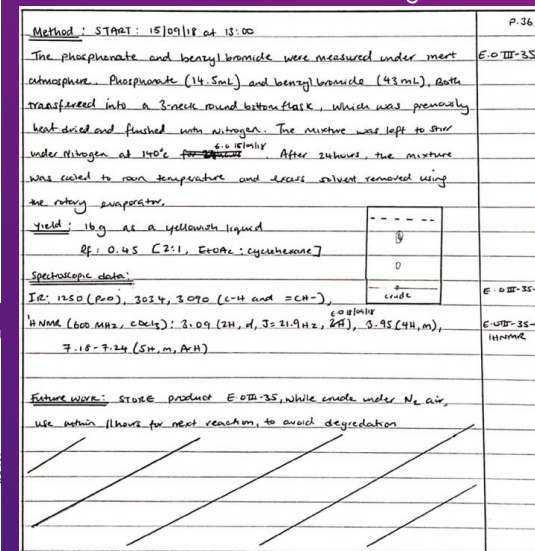 P.36
Method : START : 15/09/18 at 13:00
The phosphonate and benzyl bromide were measured under inert
E.O III-35
atmosphere. Phosphonate (14.5mL) and benzyl bromide (43mL), Both
transfereed into a 3-neck round bottom flask, which was previously
heat dried and flushed with nitrogen. The mixture was left to stirr
E.O 15/09/18
under Nitrogen at 140°C After 24hours, the mixture
was cooled to room temperature and excess solvent removed using
the rotary evaporator.
Yield : 16g as a yellowish liquid
Rf : 0.45 [2:1, EtOAc : cyclohexane]
Spectroscopic data :
crude
IR: 1250 (P=O), 3034, 3090 (C-H and =CH-),
E.O III-35-
E.O 15/09/18
¹H NMR (600 MHz, CDCl3) : 3.09 (2H, d, J=21.9Hz, 3.95 (4H, m),
E.O III-35-
1HNMR
7.18-7.24 (5H, m, ArH)
Future work : STORE product E.O III-35, while crude under N2 air,
use within 11hours for next reaction, to avoid degredation